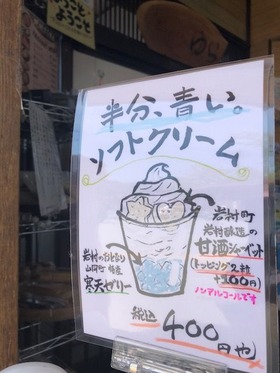 ようこそ
ようこそ
半分、青い。
ソフトクリーム
岩村町
岩村醸造の
甘酒シャーベット
(トッピング2粒
+100円)
ノンアルコールです
岩村のおとなり
山岡町 特産
寒天ゼリー
税込
400円や